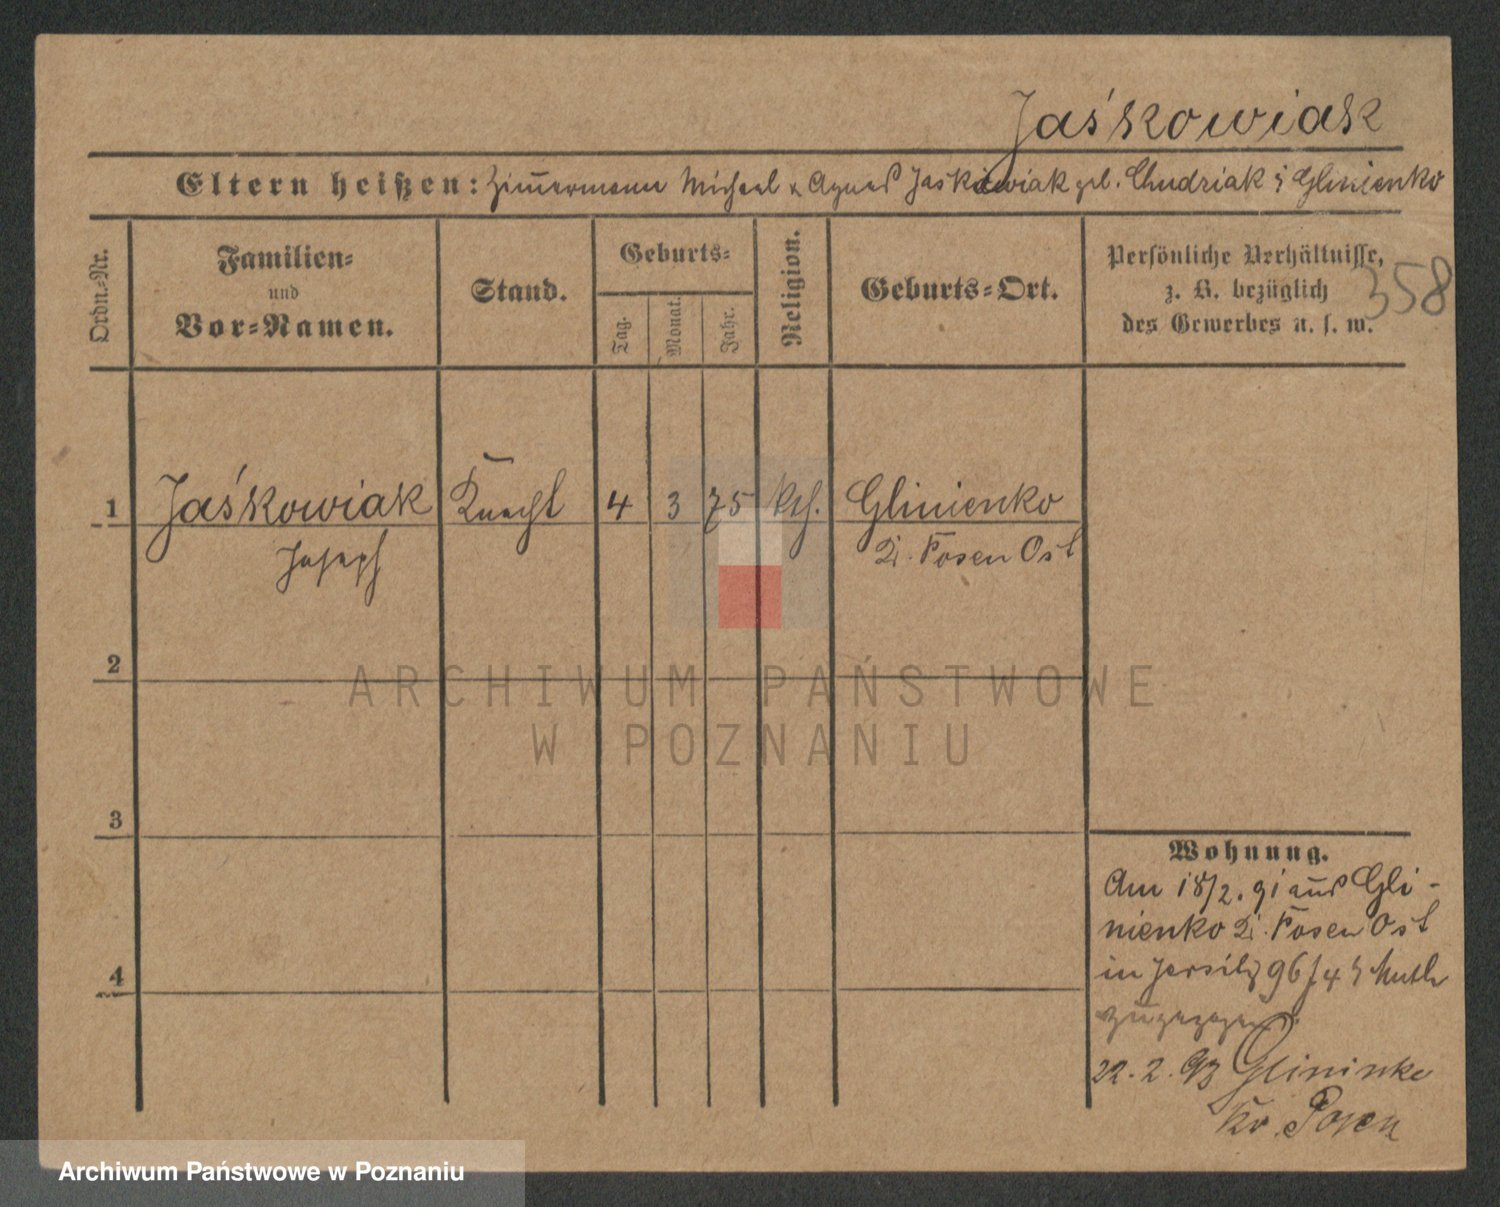 Jaśkowiak
Eltern heißen: Zimmermann Michael & Agnes Jaskowiak geb. Chudziak i Glinienko
358
Ordn.-Nr.
Familien-
und
Vor-Namen.
Stand.
Geburts-
Tag.
Monat.
Jahr.
Religion.
Geburts-Ort.
Persönliche Verhältnisse,
z. B. bezüglich
des Gewerbes u. s. w.
1 Jaśkowiak Knecht 4 3 75 kth. Glinienko
Joseph Kr. Posen Ost
2
3
4
Wohnung.
Am 18/2. 91 aus Gli-
nienko Kr. Posen Ost
in Jersitz 96/4
zugezogen.
22. 2. 93 Glininke
Kr. Posen
ARCHIWUM PAŃSTWOWE
W POZNANIU
Archiwum Państwowe w Poznaniu